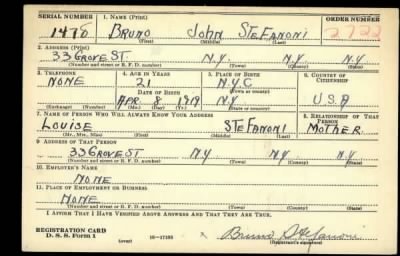 SERIAL NUMBER 1. NAME (Print) ORDER NUMBER
1478 BRUNO JOHN STEFANONI 2722
(First) (Middle) (Last)
2. ADDRESS (Print)
33 GROVE ST N.Y. N.Y. N.Y.
(Number and street or R. F. D. number) (Town) (County) (State)
3. TELEPHONE 4. AGE IN YEARS 5. PLACE OF BIRTH 6. COUNTRY OF CITIZENSHIP
NONE 21 N.Y.C.
DATE OF BIRTH (Town or county)
APR. 8 1919 N.Y. U.S.A
(Exchange) (Number) (Mo.) (Day) (Yr.) (State or country)
7. NAME OF PERSON WHO WILL ALWAYS KNOW YOUR ADDRESS 8. RELATIONSHIP OF THAT PERSON
LOUISE STEFANONI MOTHER
(Mr., Mrs., Miss) (First) (Middle) (Last)
9. ADDRESS OF THAT PERSON
33 GROVE ST N.Y. N.Y. N.Y.
(Number and street or R. F. D. number) (Town) (County) (State)
10. EMPLOYER'S NAME
NONE
11. PLACE OF EMPLOYMENT OR BUSINESS
NONE
(Number and street or R. F. D. number) (Town) (County) (State)
I AFFIRM THAT I HAVE VERIFIED ABOVE ANSWERS AND THAT THEY ARE TRUE.
REGISTRATION CARD
D. S. S. Form 1 (over) 16—17105 Bruno Stefanoni
(Registrant's signature)